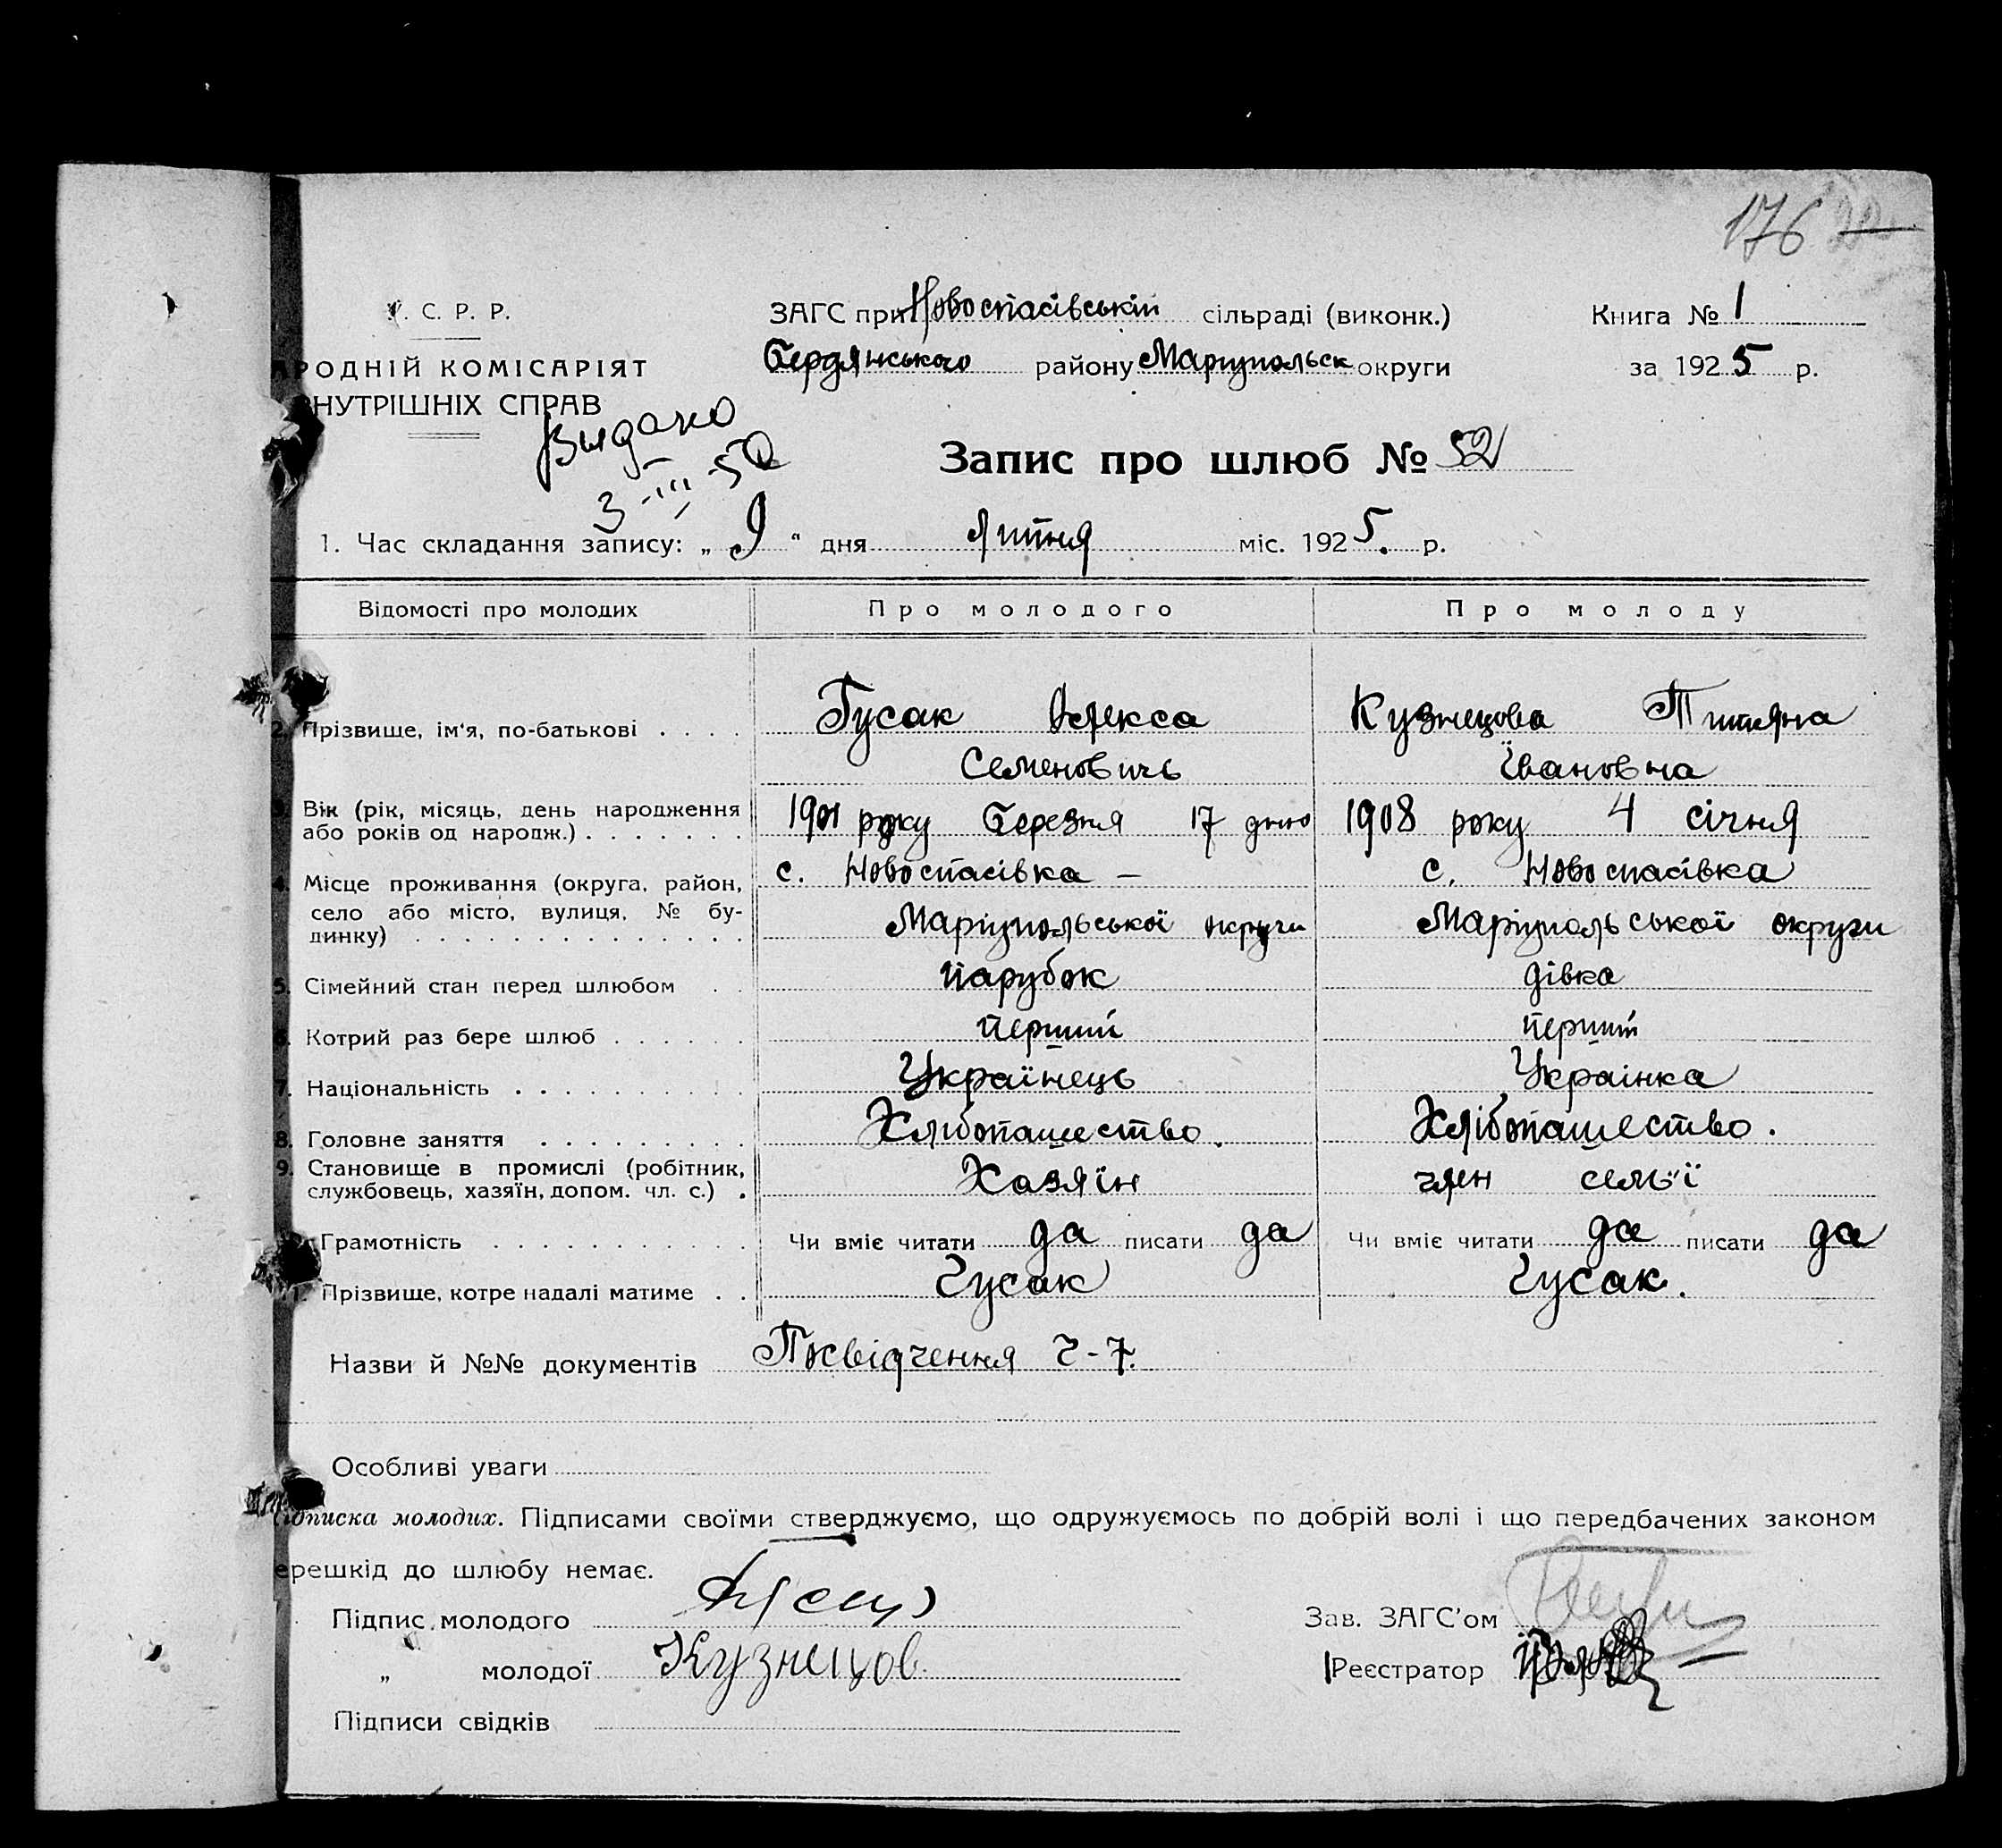 176
. С. Р. Р.
АРОДНІЙ КОМІСАРІЯТ
НУТРІШНІХ СПРАВ
Видано
3-III-50
ЗАГС при Новоспасівській сільраді (виконк.)
Бердянського району Маріупольск округи
Книга № 1
за 1925 р.
Запис про шлюб № 52
1. Час складання запису: „ 9 “ дня липня міс. 1925. р.
Відомості про молодих Про молодого Про молоду
2. Прізвище, ім‘я, по-батькові . . . . Гусак Олекса Кузнецова Титяна
Семеновичь Івановна
3. Вік (рік, місяць, день народження 1901 року Березня 17 дню 1908 року 4 січня
або років од народж.) . . . . . . .
с. Новоспасівка – с. Новоспасівка
4. Місце проживання (округа, район,
село або місто, вулиця, № бу-
динку) . . . . . . . . . . . . . . Маріупольської округи Маріупольської округи
5. Сімейний стан перед шлюбом . . парубок дівка
6. Котрий раз бере шлюб . . . . . . перший перший
7. Національність . . . . . . . . . . Українець Украінка
8. Головне заняття . . . . . . . . . Хлібопашество. Хлібопашество.
9. Становище в промислі (робітник, Хазяїн член семьї
службовець, хазяїн, допом. чл. с.) .
Грамотність . . . . . . . . . . . Чи вміє читати да писати да Чи вміє читати да писати да
11. Прізвище, котре надалі матиме . . Гусак Гусак.
Назви й №№ документів Посвідчення Ч-7.
Особливі уваги
ідписка молодих. Підписами своїми стверджуємо, що одружуємось по добрій волі і що передбачених законом
ерешкід до шлюбу немає.
Підпис молодого
Зав. ЗАГС’ом
„ молодої Кузнецов
Реєстратор
Підписи свідків